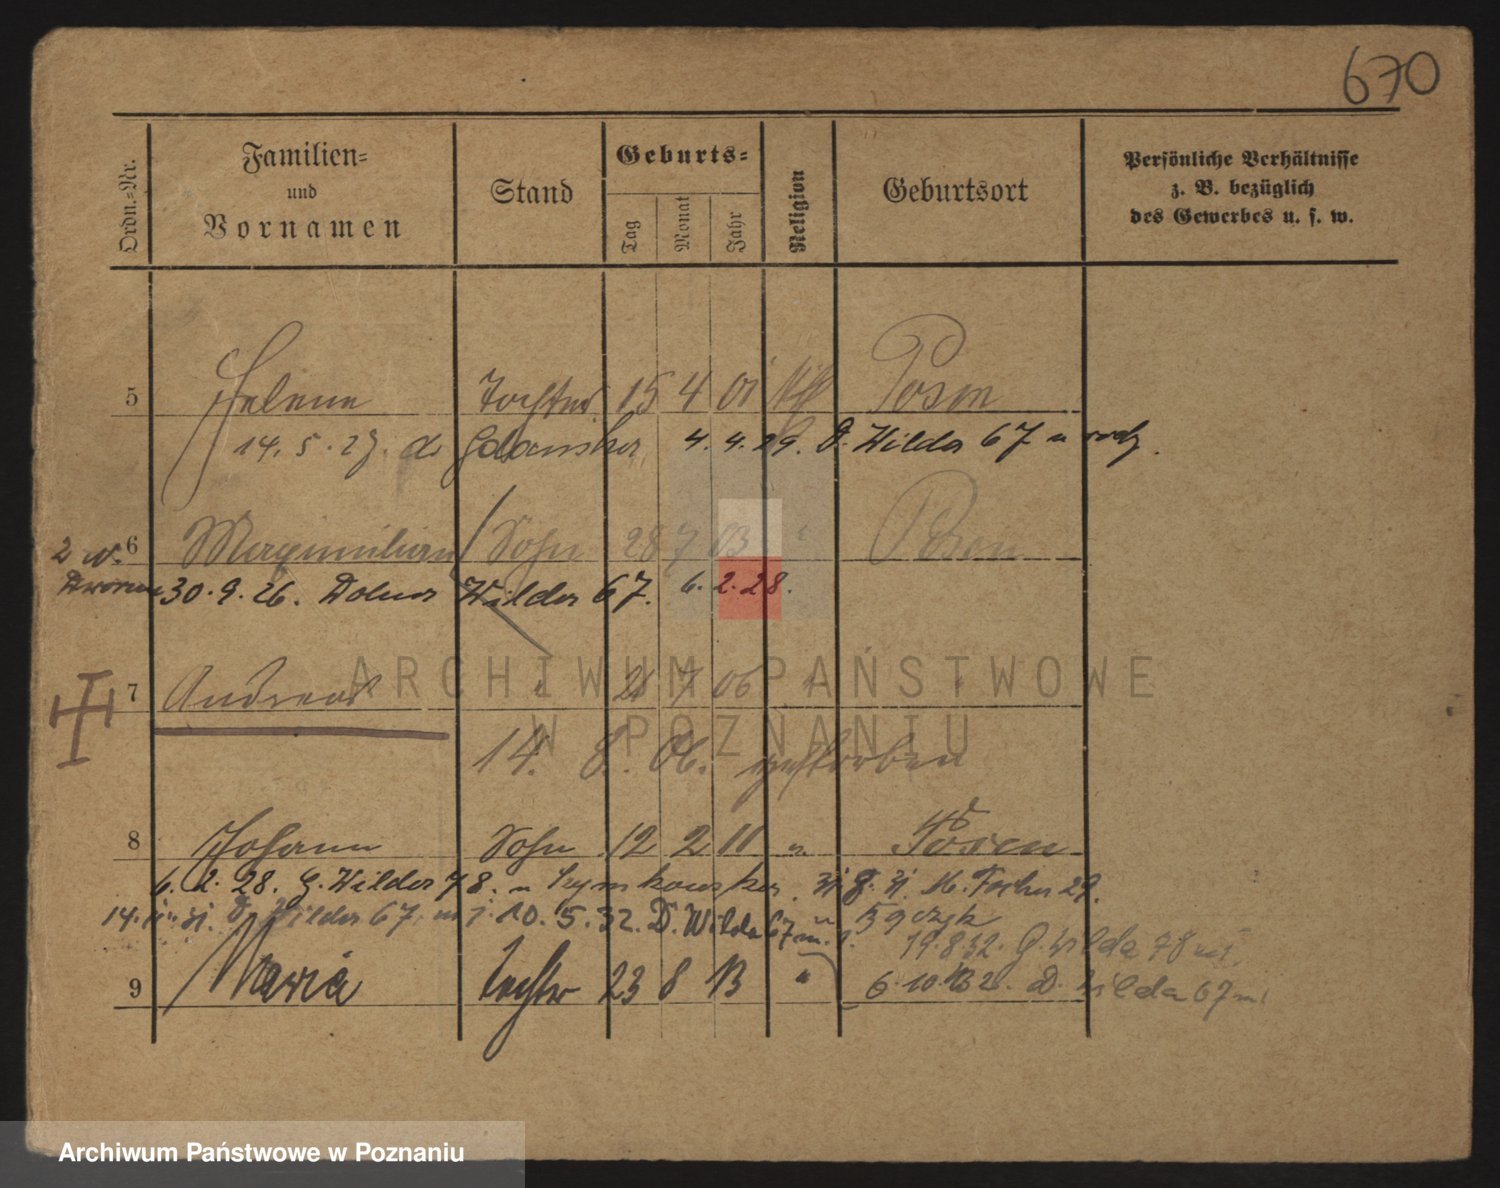 670
Ordn.-Nr. Familien- und Vornamen Stand Geburts- Tag Monat Jahr Religion Geburtsort Persönliche Verhältnisse z. B. bezüglich des Gewerbes u. s. w.
5 Helene Tochter 15 4 01 Posen
14. 5. 27. Gdanska 4. 4. 29. D. Wilda 67 u
6 Maximilian Sohn 28 7 03 Posen
2 w.
30. 9. 26. Dolna Wilda 67. 6. 2. 28.
7 Andreas 7 06
14. 8. 06. gestorben
8 Johann Sohn 12 2 11 Posen
6. 2. 28. G. Wilda 78. 29.
D. Wilda 67, 10. 5. 32. D. Wilda 67
19.8.32. G. Wilda 78
9 Maria Tochter 23 8 13 "
6.10.32. D. Wilda 67
ARCHIWUM PAŃSTWOWE
W POZNANIU
Archiwum Państwowe w Poznaniu